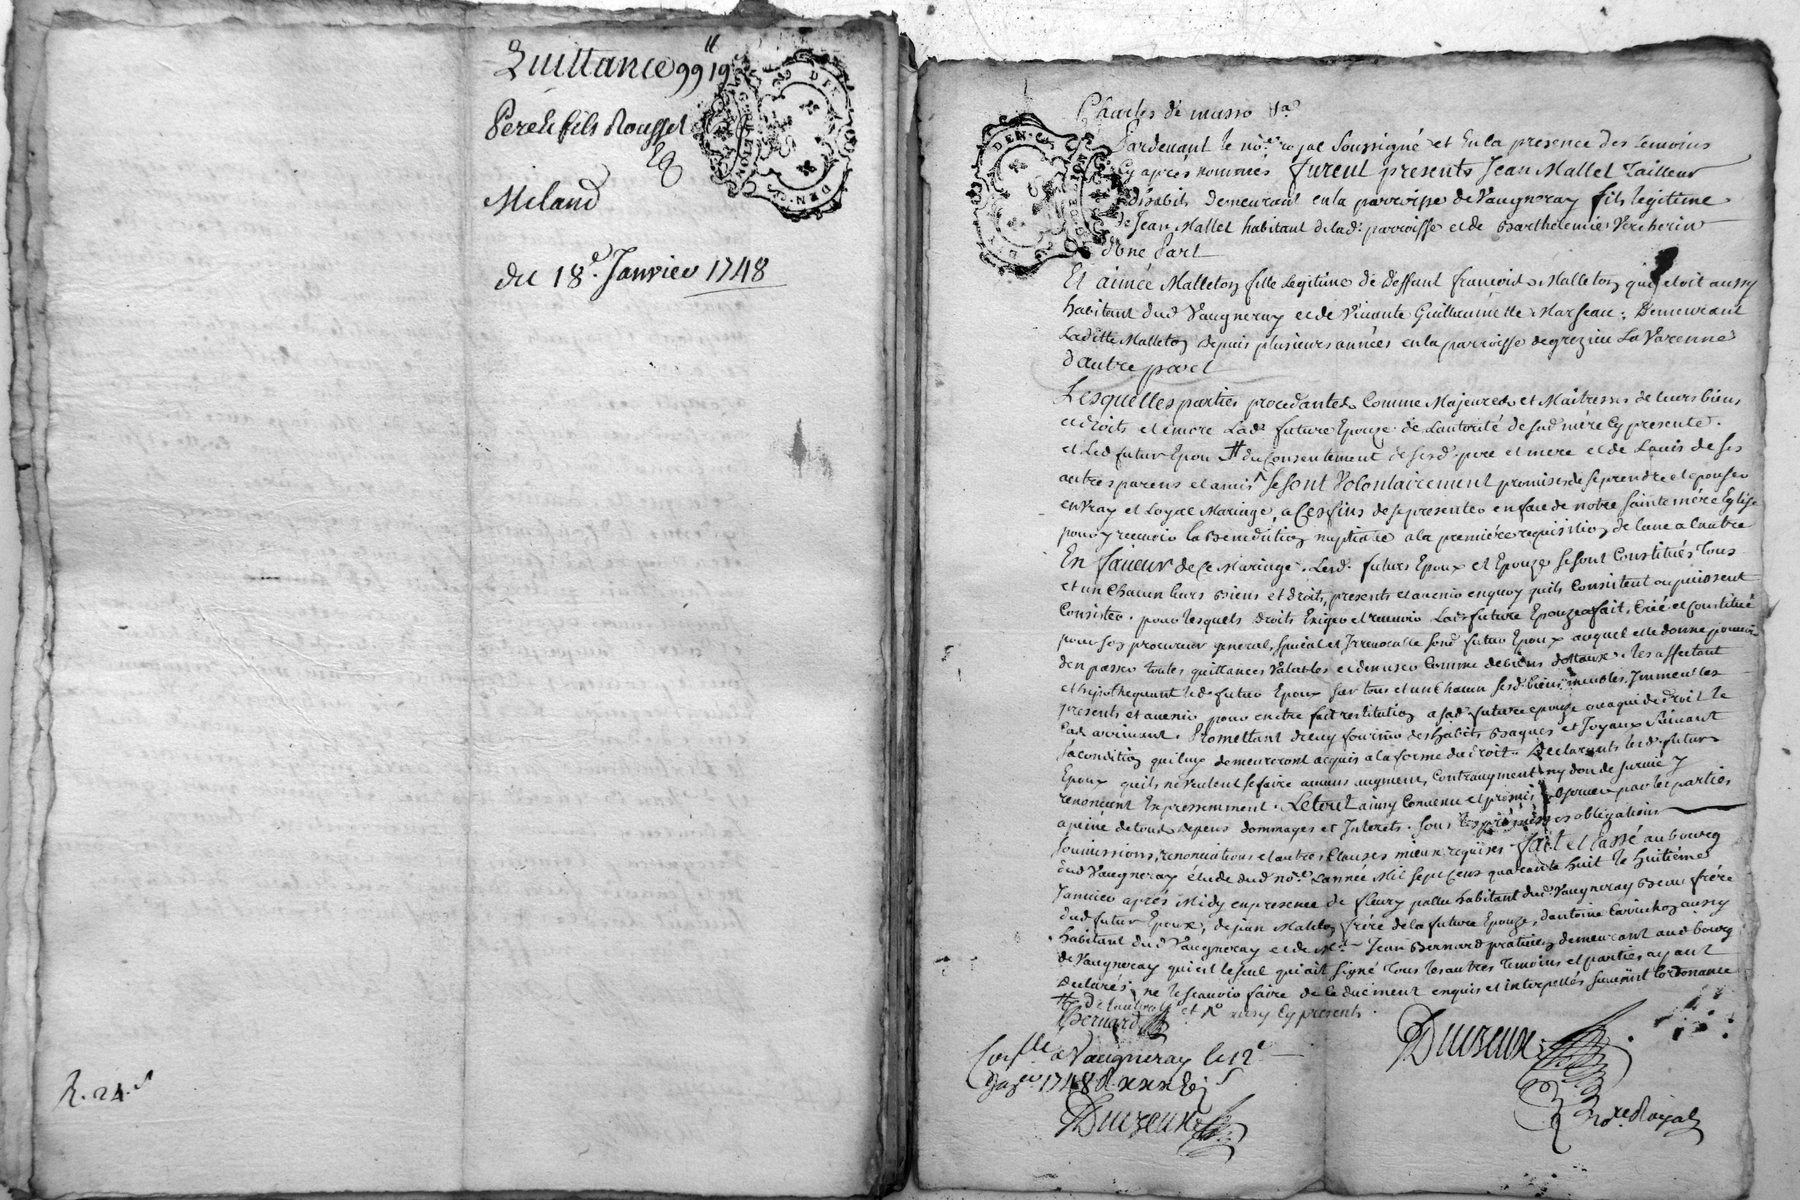 Quittance 99ᴸᴸ 19
Pere et fils Rousset
Et
Meland
du 18ᵉ Janvier 1748
R. 24.ˢ
GEN. DE LYON
DEN.
Pardevant le noᵉ royal soussigné et En la presence des temoins
Cy aprés nommés furent presents Jean Mallet Tailleur
d'habits demeurant en la parroisse de Vaugneray fils legitime
de Jean Mallet habitant de lad. parroisse et de Barthelemie Vercherin
d'une Part
Et aimée Malleton fille Legitime de deffunt francois Malleton qui etoit aussy
habitant dud Vaugneray et de Vivante Guillaumette Marseau, Demeurant
Laditte Malleton depuis plusieurs années en la parroisse de grezieu La Varenne
d'autre part
Lesquelles parties procedantes Comme Majeures et Maitresses de leurs biens
et droits et encore Lad. future Epouze de L'autorité de sad. mére Cy presente.
et Led futur Epoux # du Consentement de sesd. pere et mere et de L'avis de ses
autres parens et amis se sont Volontairement promis de se prendre et Epouser
en vray et Loyal Mariage, a Ces fins de se presenter en face de notre sainte mére Eglise
pour y recevoir la Benediction nuptiale a la premiére requisition de l'une a L'autre
En faveur de Ce Mariage. Lesd. futurs Epoux et Epouze se sont Constitués Tous
et un Chacun leurs Biens et droits, presents et avenir en quoy qu'ils Consistent ou puissent
Consister. pour lesquels droits Exiger et recevoir Lad. future Epouze a fait, Créé et Constitué
pour son procureur general, special et Irrevocable sond. futur Epoux auquel elle donne pouvoir
d'en passer toutes quittances Valables et d'en user Comme de biens dottaux, les affectant
et hipothequant led. futur Epoux sur tous et un Chacun sesd. biens, meubles, Immeubles
presents et avenir pour en etre fait restitution a sad. future epouze ou a qui de droit le
Cas arrivant. Promettant de luy fournir des habits Bagues et Joyaux suivant
sa condition qui luy demeureront acquis a la forme du droit. Declarants lesd. futurs
Epoux qu'ils ne veulent se faire aucuns augment, Contraugment ny don de survie y
renoncant Expressemment. Le tout ainsy Convenu et promis observer par les parties
a peine de tous depens dommages et Interets. sous les obligations
soumissions, renonciations et autres Clauses mieux requises. fait et Passé au bourg
dud Vaugneray étude dud noᵉ. L'année Mil sept Cens quarante Huit le Huitiéme
Janvier aprés Midy en presence de fleury pallu habitant dud Vaugneray Beau frére
dud futur Epoux, de jean Malleton frére de la future Epouze, d'antoine aussy
habitant dud Vaugneray et de Mᵉ Jean Bernard praticien demeurant aud bourg
de Vaugneray qui est le seul qui ait signé Tous les autres temoins et parties ayant
Declarés ne le scavoir faire de Ce duement enquis et interpellés suivant L'ordonance
et aussy Cy presents.
Bernard
Conˡˡᵉ a Vaugneray le 12ᵉ
Janᵉʳ 1748 R xxx
Duizeux
Duizeux
noʳᵉ Royal